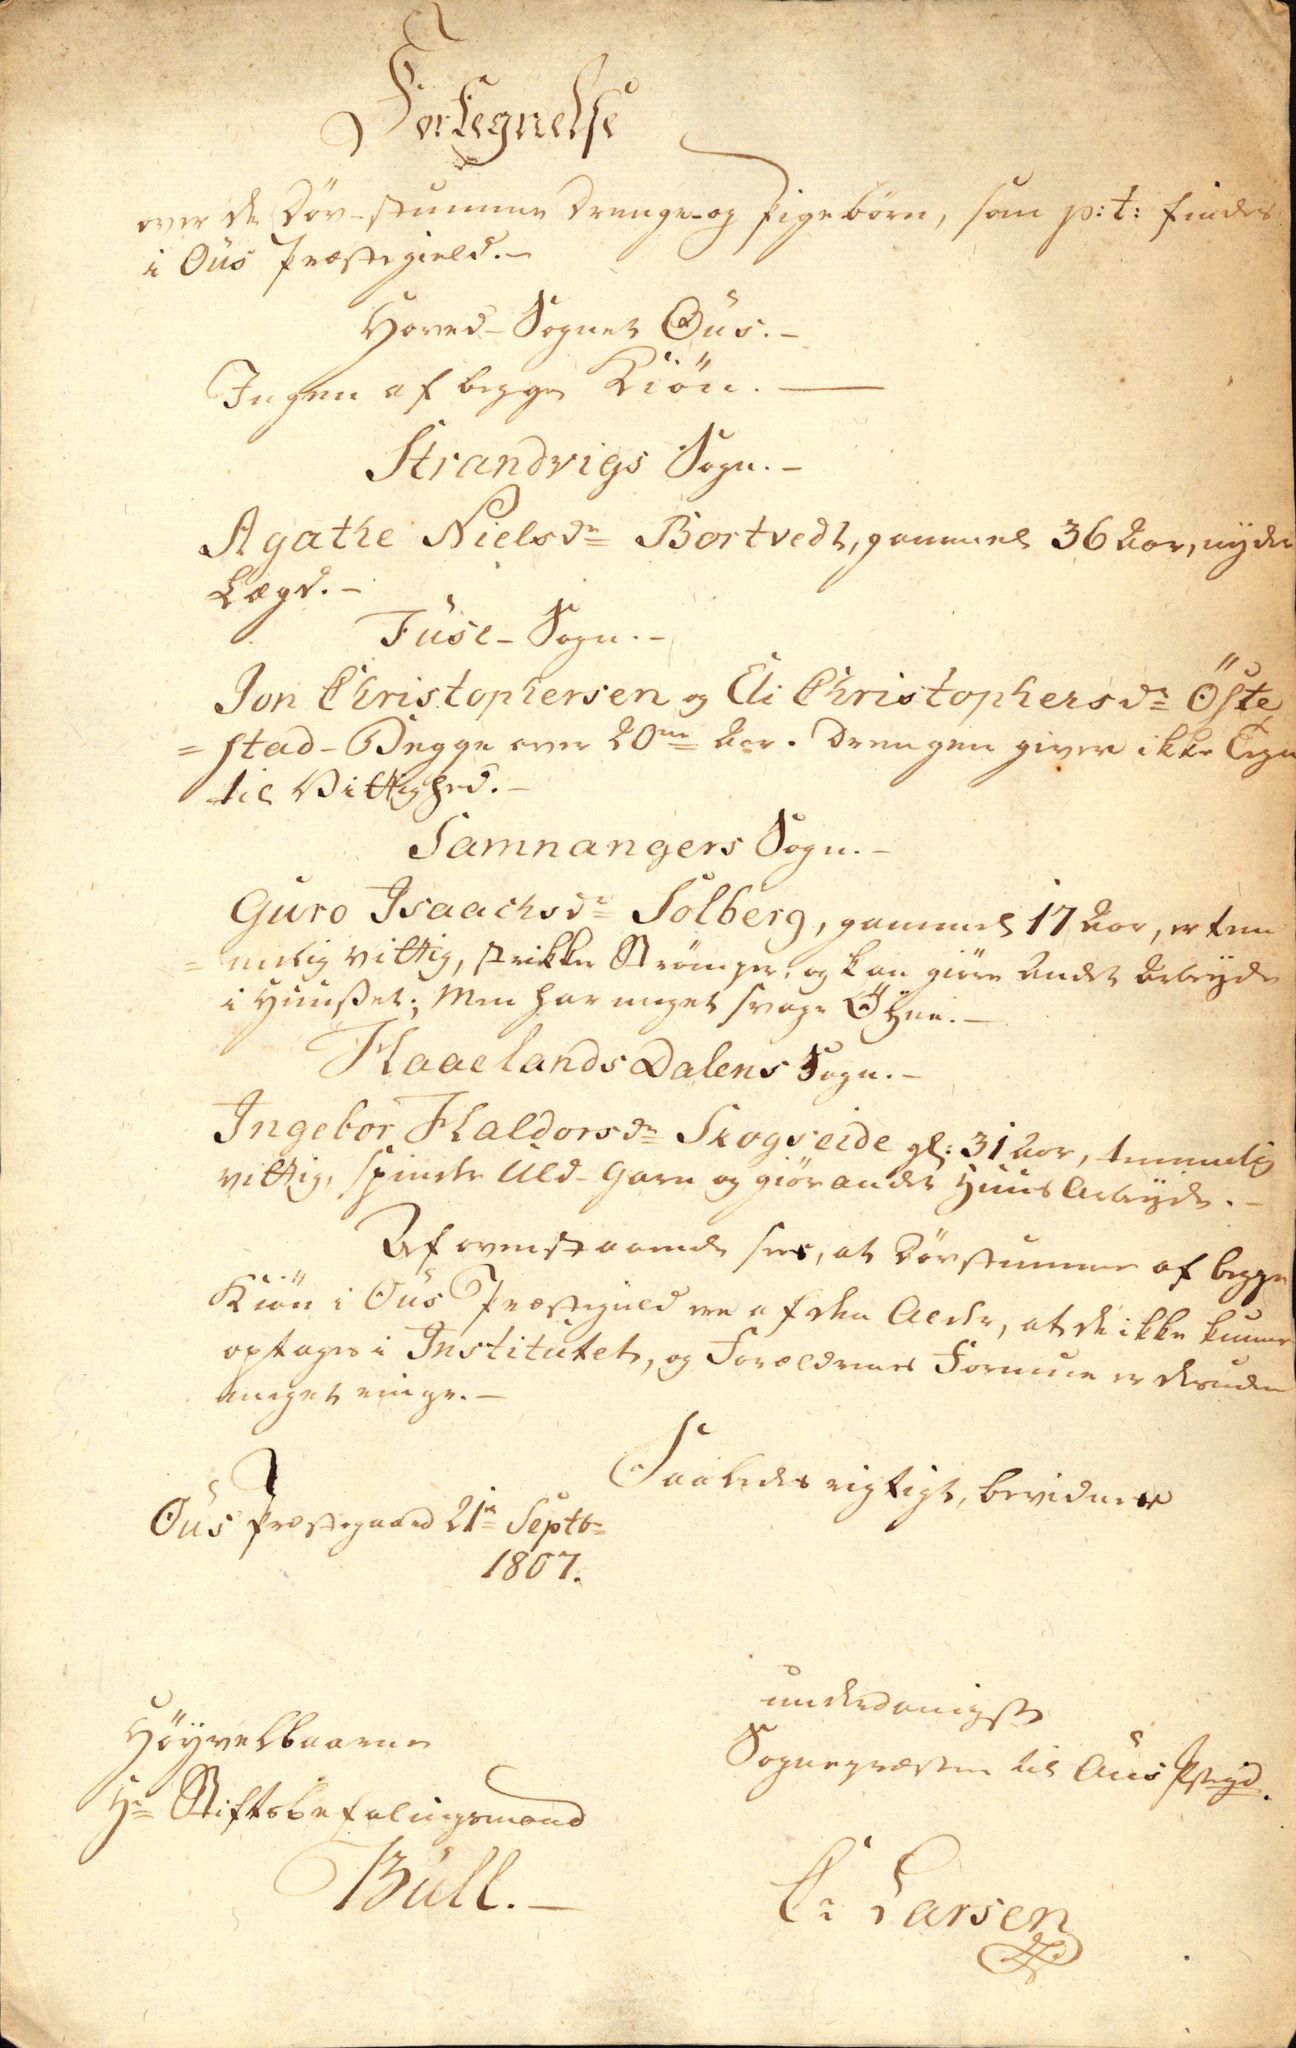 Fortegnelse
over de Döv-stumme Drenge- og Pigebörn, som p: t: findes
i Ous Præstegield.-
Hoved-Sognet Ous.-
Ingen af begge Kiön.-
Strandvigs Sogn.-
Agathe Nielsdr Bortvedt, gammel 36 Aar, nyder
Lægd.-
Fuse-Sogn.-
Jon Christophersen og Eli Christophersdr Öste
=stad-Begge over 20ve Aar. Drengen giver ikke Tegn
til Vittighed.-
Samnangers Sogn.-
Guro Isaachsdr Solberg, gammel 17 Aar, er tem
=melig vittig, strikker Strömper, og kan giöre Andet Arbejde
i Huuset; Men har meget svage Öyne.-
Haaelands Dalens Sogn.-
Ingebor Haldorsdr Skogseide gl: 31 Aar, temmelig
vittig, spinder Uld-Garn og giör andet Huus Arbeyde.-
Af ovenstaaende sees, at Dövstumme af begge
Kiön i Ous Præstegield ere af den Alder, at de ikke kunne
optages i Institutet, og Forældrenes Formue er desuden
meget ringe.-
Saaledes rigtigt, bevidner
Ous Præstegaard 21de Septbr
1807.
underdanigst
Sognepræsten til Ous Pstgd.
C: Larsen
Höyvelbaarne
Hr Stiftsbefalingsmand
Bull.-